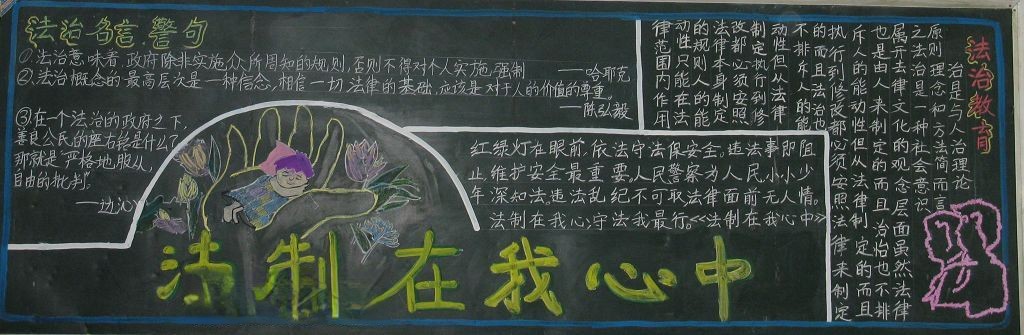 法治名言警句
①.法治意味着,政府除非实施众所周知的规则,否则不得对个人实施,强制
——哈耶克
②.法治概念的最高层次是一种信念,相信一切法律的基础,应该是对于人的价值的尊重。
——陈弘毅
③在一个法治的政府之下,
善良公民的座右铭是什么?
那就是"严格地服从,
自由的批判"
——边沁
法制教育
法治是与人治理论
原则理念和方法简而言
之法治是一种社会意识
属于法律文化的观念层面虽然法律
也是由人来制定的而且法治也不排
斥人的能动性但从法律制定的而且
执行到修改都必须安照法律来制定
的而且法治的
不排斥人的能
动性但从法律
制定执行到修
改都必须安照
法律本身制定
的规则人的能
动性只能在法
律范围内作用
红绿灯在眼前,依法守法保安全。违法事即小阻
止,维护安全最重要。人民警察为人民,小小少
年深知法,违法乱纪不可取,法律面前无人情。
法制在我心,守法我最行。《法制在我心中》
法制在我心中